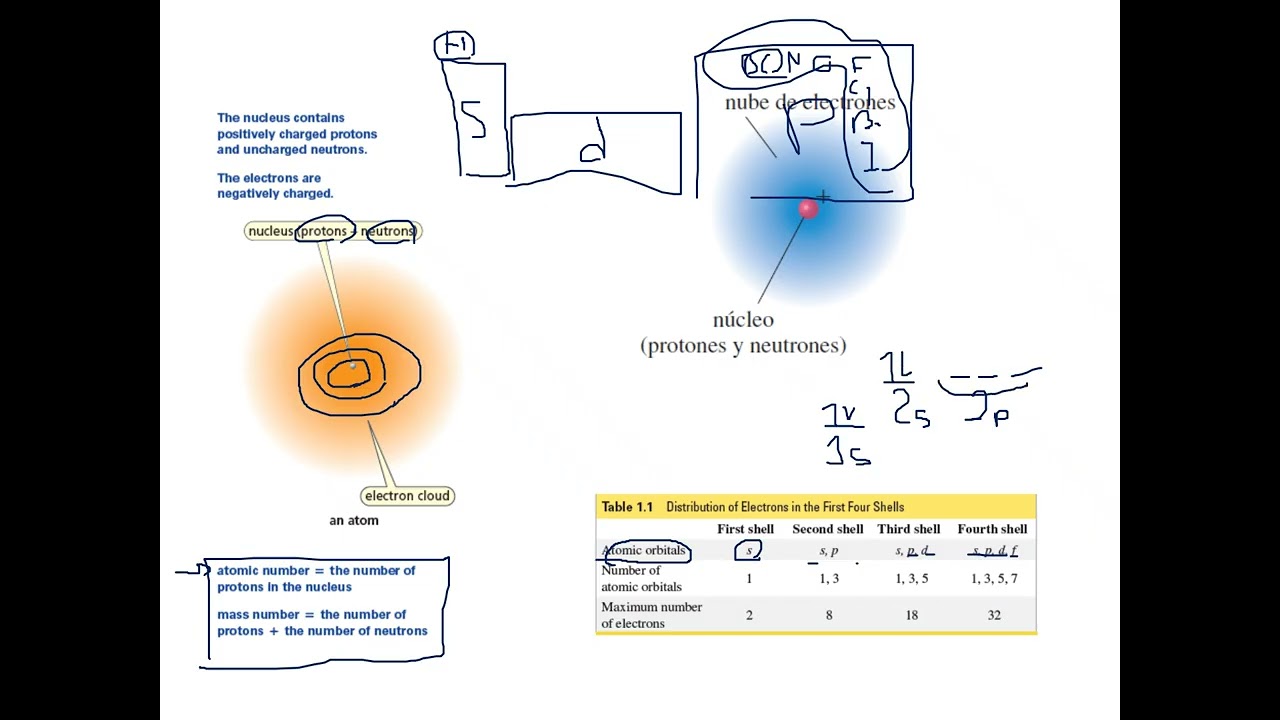 H
S
d
B C N O F
Cl
Br
I
P
nube de electrones
The nucleus contains
positively charged protons
and uncharged neutrons.
The electrons are
negatively charged.
nucleus (protons + neutrons)
núcleo
(protones y neutrones)
2s
p
s
electron cloud
an atom
atomic number = the number of
protons in the nucleus
mass number = the number of
protons + the number of neutrons
Table 1.1 Distribution of Electrons in the First Four Shells
First shell Second shell Third shell Fourth shell
Atomic orbitals s s, p s, p, d s, p, d, f
Number of
atomic orbitals 1 1, 3 1, 3, 5 1, 3, 5, 7
Maximum number
of electrons 2 8 18 32